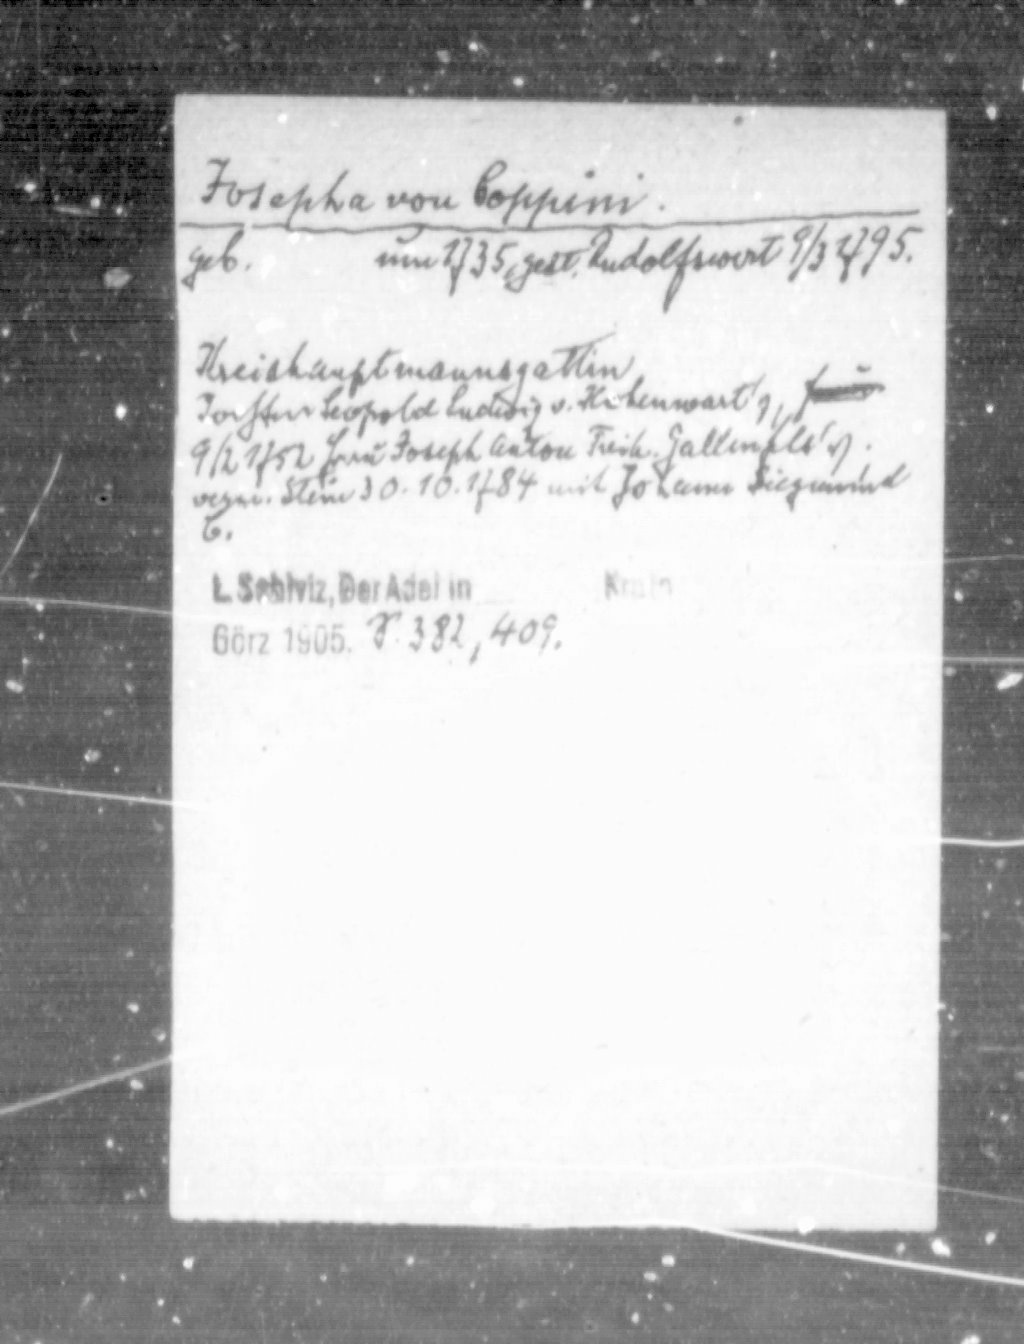 Josepha von Coppini.
geb. um 1735, gest. Rudolfswert 9/3 1795.
Kreishauptmannsgattin
Tochter Leopold Ludwig v. Hohenwart's,
9/2 1752 Frau Joseph Anton Freih. Gallenfels'
verm. Stein 30.10.1784 mit Johann Siegmund
C.
L. Schiviz, Der Adel in Krain
Görz 1905. S. 382, 409.